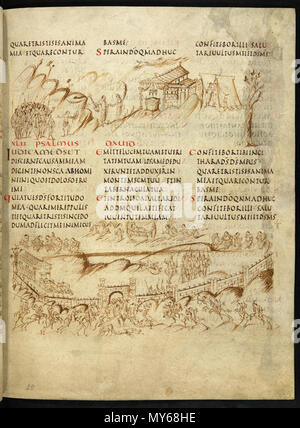 QUARETRISTISESANIMA
MEAETQUARECONTUR
BASME
SPERAINDOQMADHUC
CONFITEBORILLISALU
TARIUULTUSMEIETDSMS
XLII PSALMUS DAVID
IUDICAMEDSET
DISCERNECAUSAMMEAM
DEGENTENONSCAABHOMI
NEINIQUOETDOLOSOERUE
ME
QUIATUESDSFORTITUDO
MEAQUAREMEREPPULIS
TIETQUARETRISTISINCEDO
DUMADFLIGITMEINIMICUS
EMITTELUCEMTUAMETUERI
TATEMTUAMIPSAMEDEDU
XERUNTETADDUXERUNTIN
MONTEMSCMTUUMETIN
TABERNACULATUA
ETINTROIBOADALTAREDI
ADDMQUILAETIFICAT
IUUENTUTEMMEAM
CONFITEBORTIBIINCI
THARADSDSMEUS
QUARETRISTISESANIMA
MEAETQUARECONTUR
BASME
SPERAINDOQMADHUC
CONFITEBORILLISALU
TARIUULTUSMEIETDSMS
alamy
MY68HE